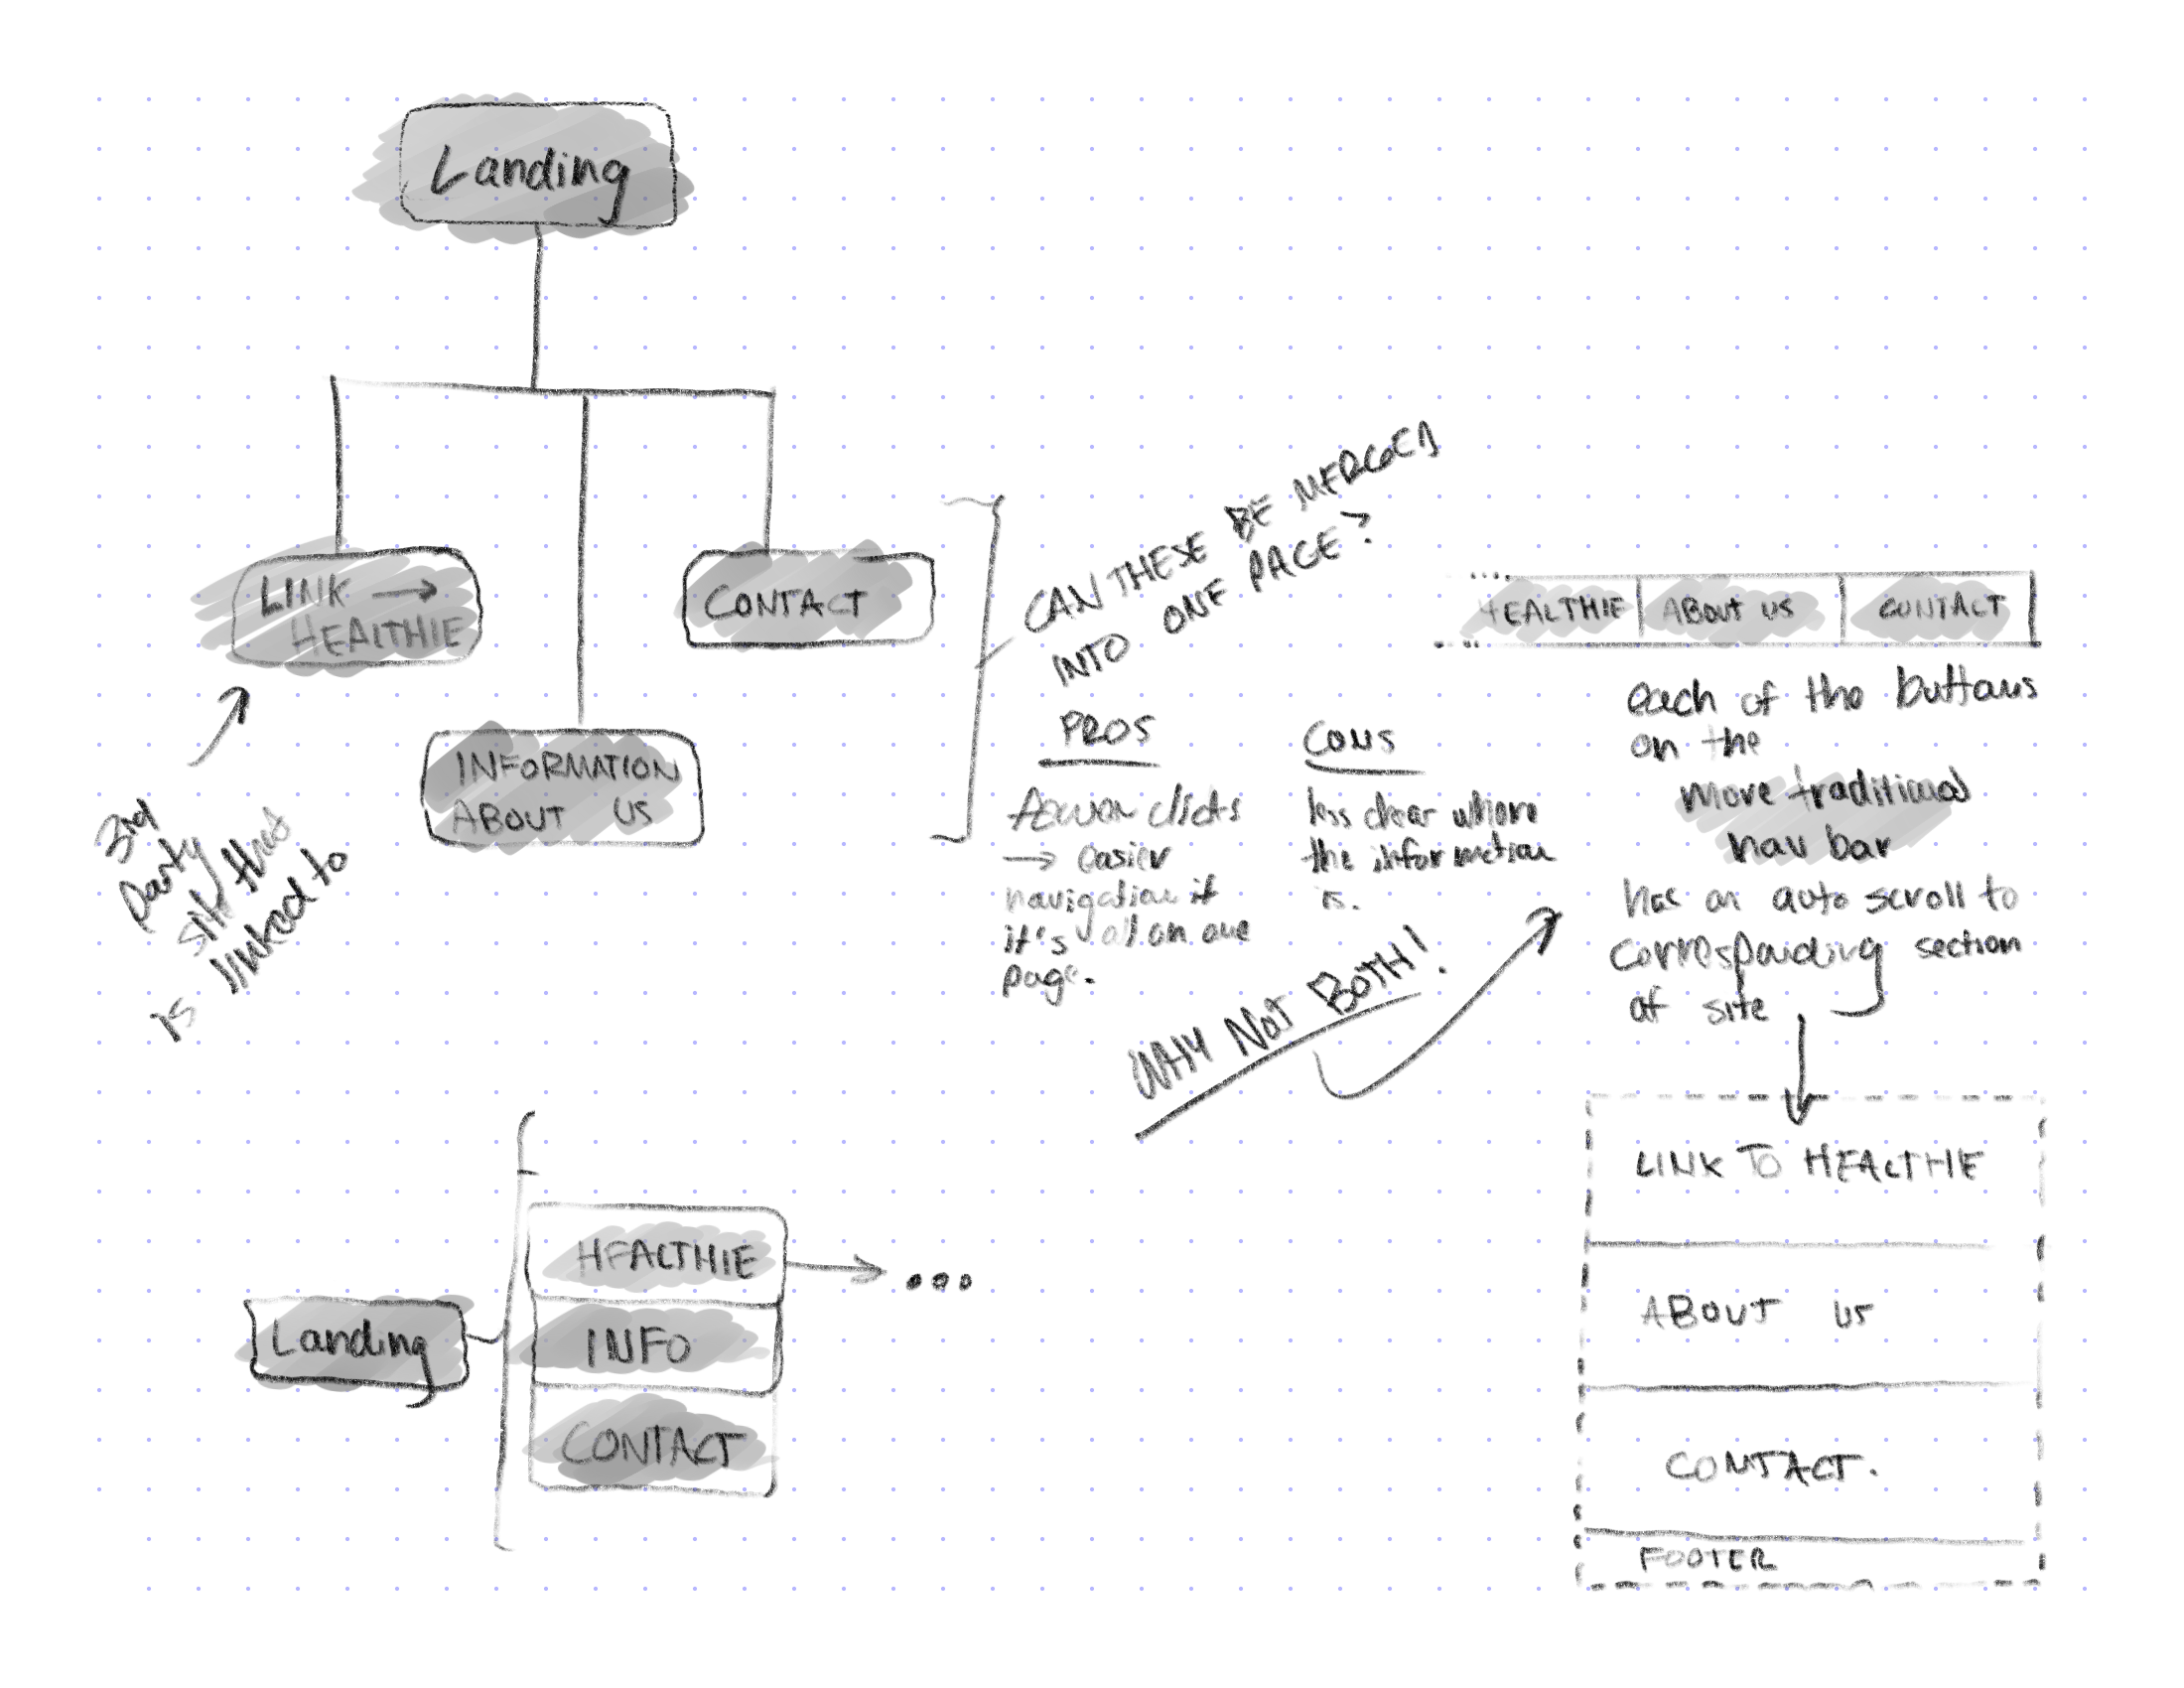 Landing
LINK →
HEALTHIE
CONTACT
INFORMATION
ABOUT US
3rd
party
site that
is linked to
CAN THESE BE MERGED
INTO ONE PAGE?
PROS
Fewer clicks
→ easier
navigation if
it's all on one
page.
CONS
less clear where
the information
is.
WHY NOT BOTH!
HEALTHIE
ABOUT US
CONTACT
each of the buttons
on the
more traditional
nav bar
has an auto scroll to
corresponding section
of site
LINK TO HEALTHIE
ABOUT US
CONTACT.
FOOTER
Landing
HEALTHIE
→ ...
INFO
CONTACT